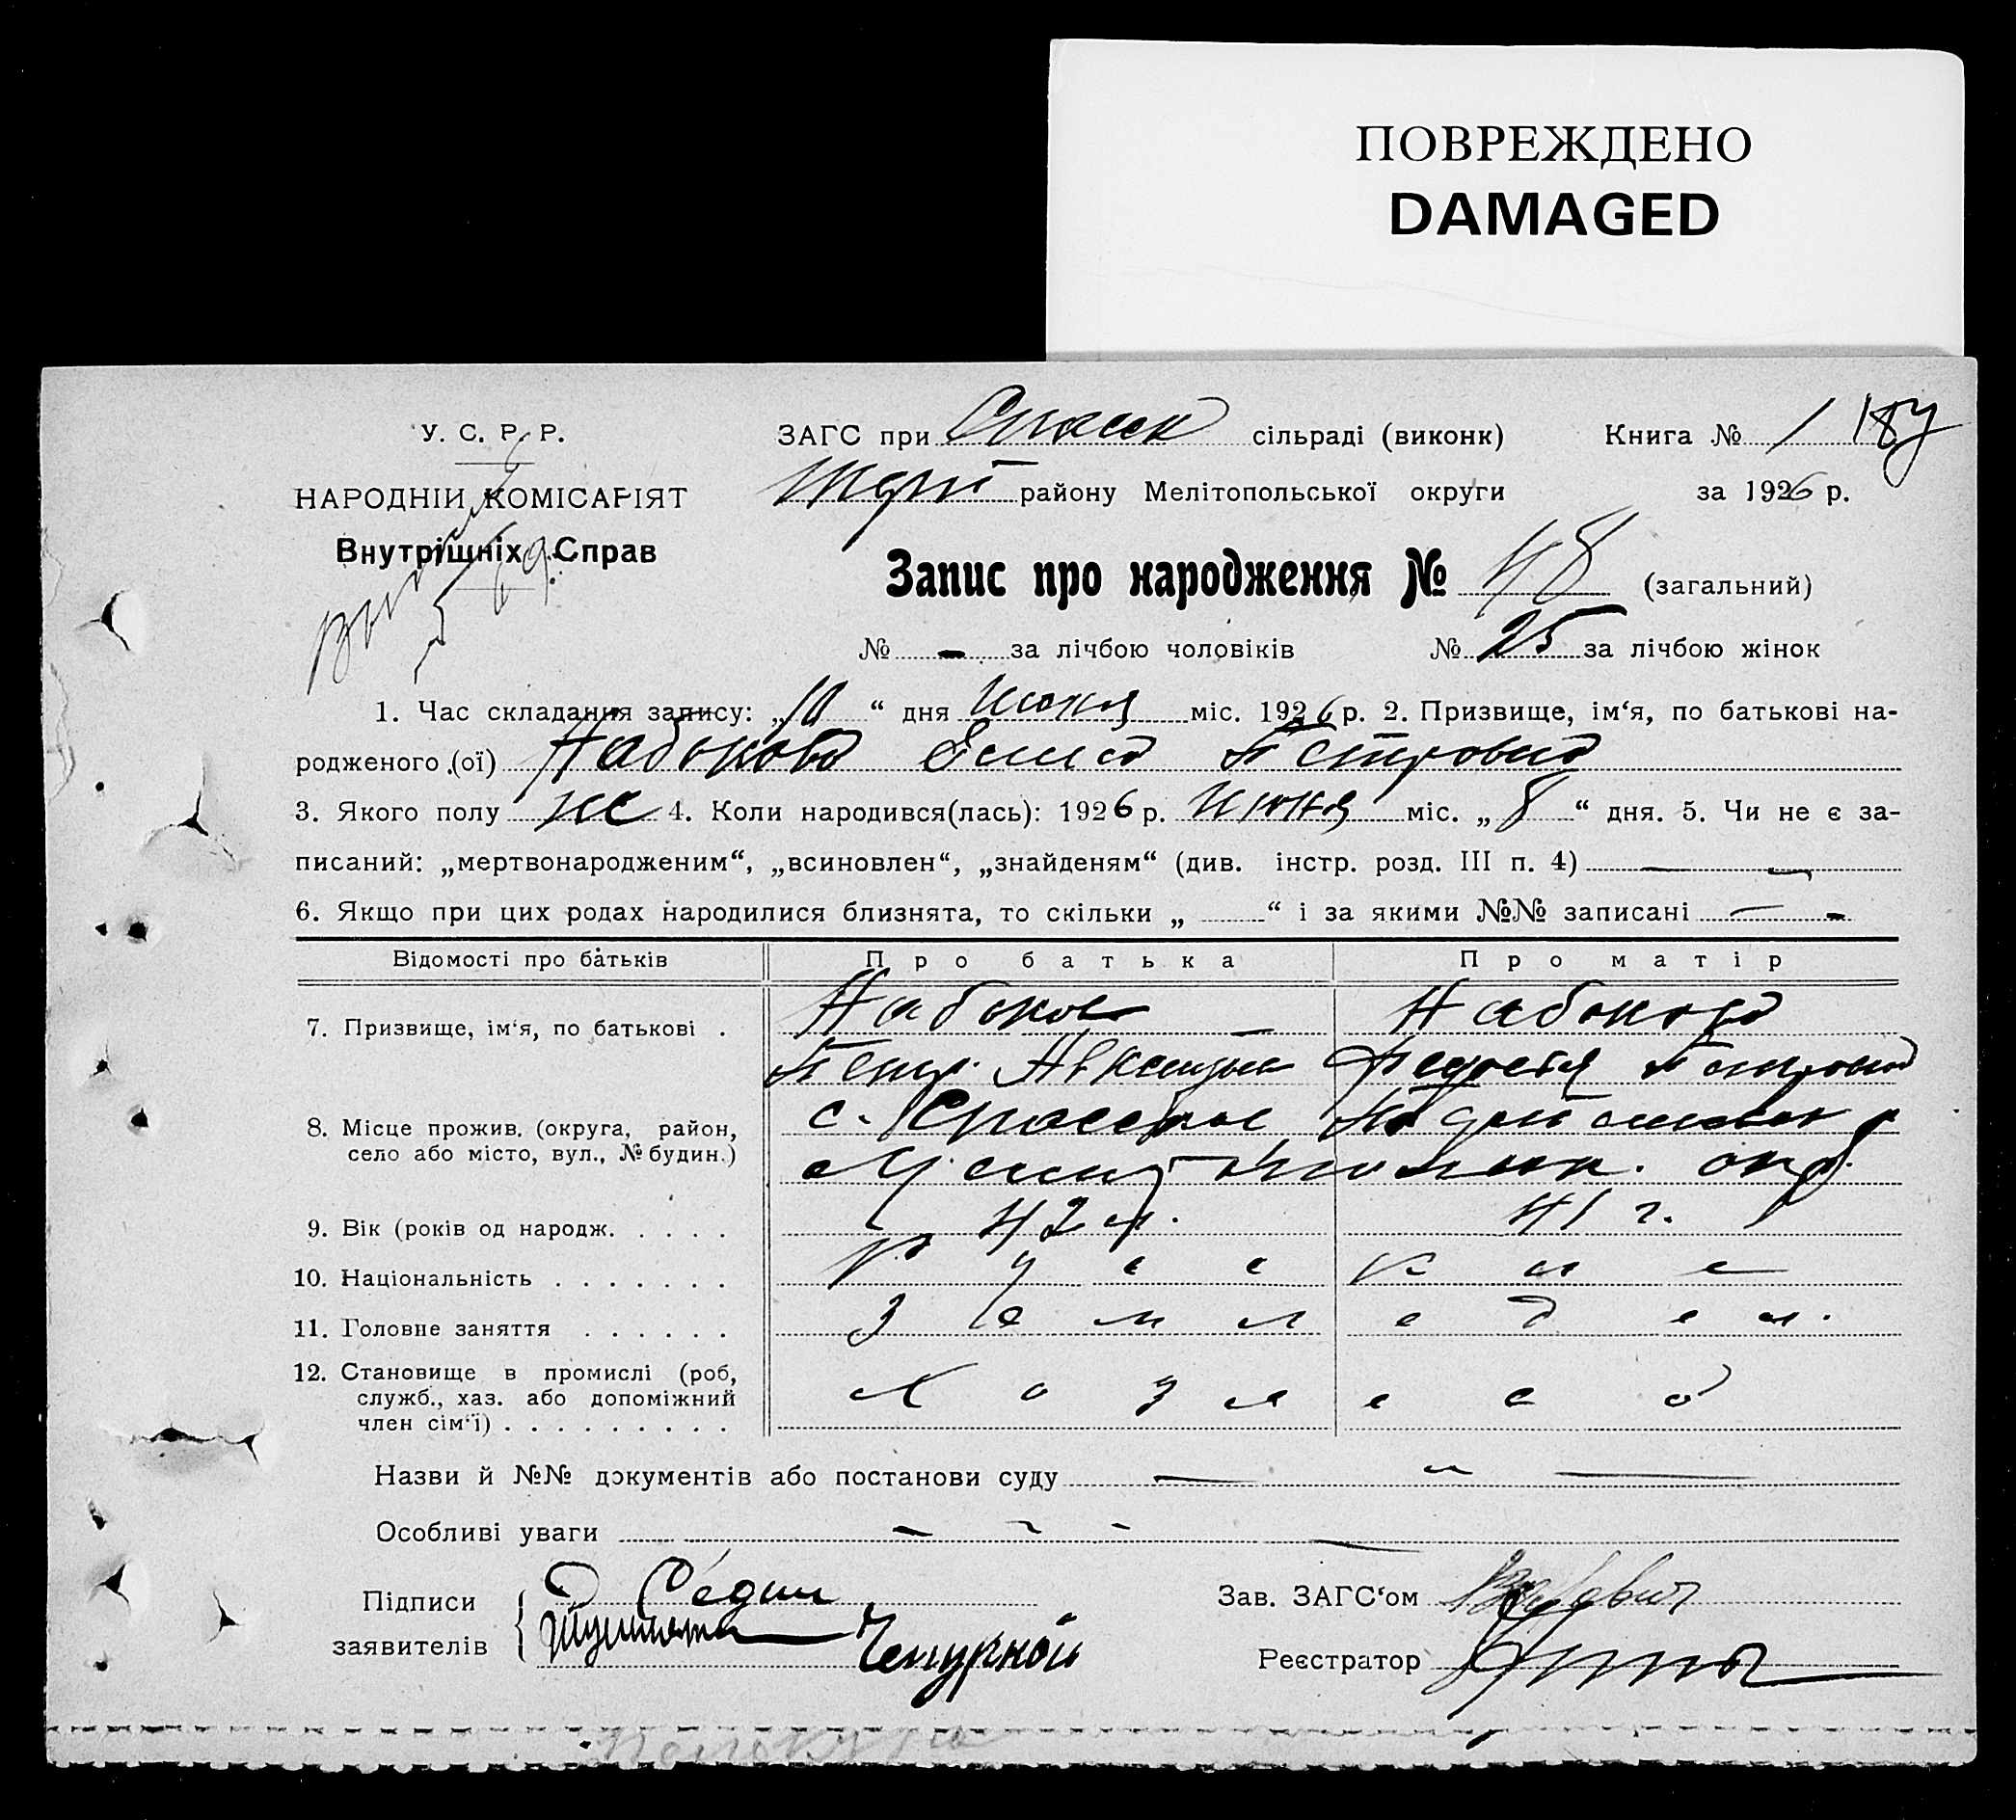 ПОВРЕЖДЕНО
DAMAGED
У. С. Р. Р.
ЗАГС при Спасск сільраді (виконк) Книга № 1 187
НАРОДНІЙ КОМІСАРІЯТ
району Мелітопольської округи за 1926 р.
Внутрішніх Справ
Запис про народження № 48 (загальний)
№ - за лічбою чоловіків № 25 за лічбою жінок
1. Час складання запису: „10“ дня Июня міс. 1926 р. 2. Призвище, ім‘я, по батькові на-
родженого (ої) Набокова Петровна
3. Якого полу же 4. Коли народився(лась): 1926 р. Июня міс. „8“ дня. 5. Чи не є за-
писаний: „мертвонародженим“, „всиновлен“, „знайденям“ (див. інстр. розд. III п. 4) —
6. Якщо при цих родах народилися близнята, то скільки „ “ і за якими №№ записані — -
Відомості про батьків Про батька Про матір
7. Призвище, ім‘я, по батькові . Набоков Набокова
Петр Федосья Петровна
8. Місце прожив. (округа, район, с.
село або місто, вул., № будин.) окр.
9. Вік (років од народж. . . . . 42 л. 41 г.
10. Національність . . . . . . . Русские
11. Головне заняття . . . . . . Земледел.
12. Становище в промислі (роб,
служб., хаз. або допоміжний
член сім‘ї) . . . . . . . . .
Назви й №№ документів або постанови суду — —
Особливі уваги - - -
Підписи Седин Зав. ЗАГС‘ом
заявителів Чепурной Реєстратор